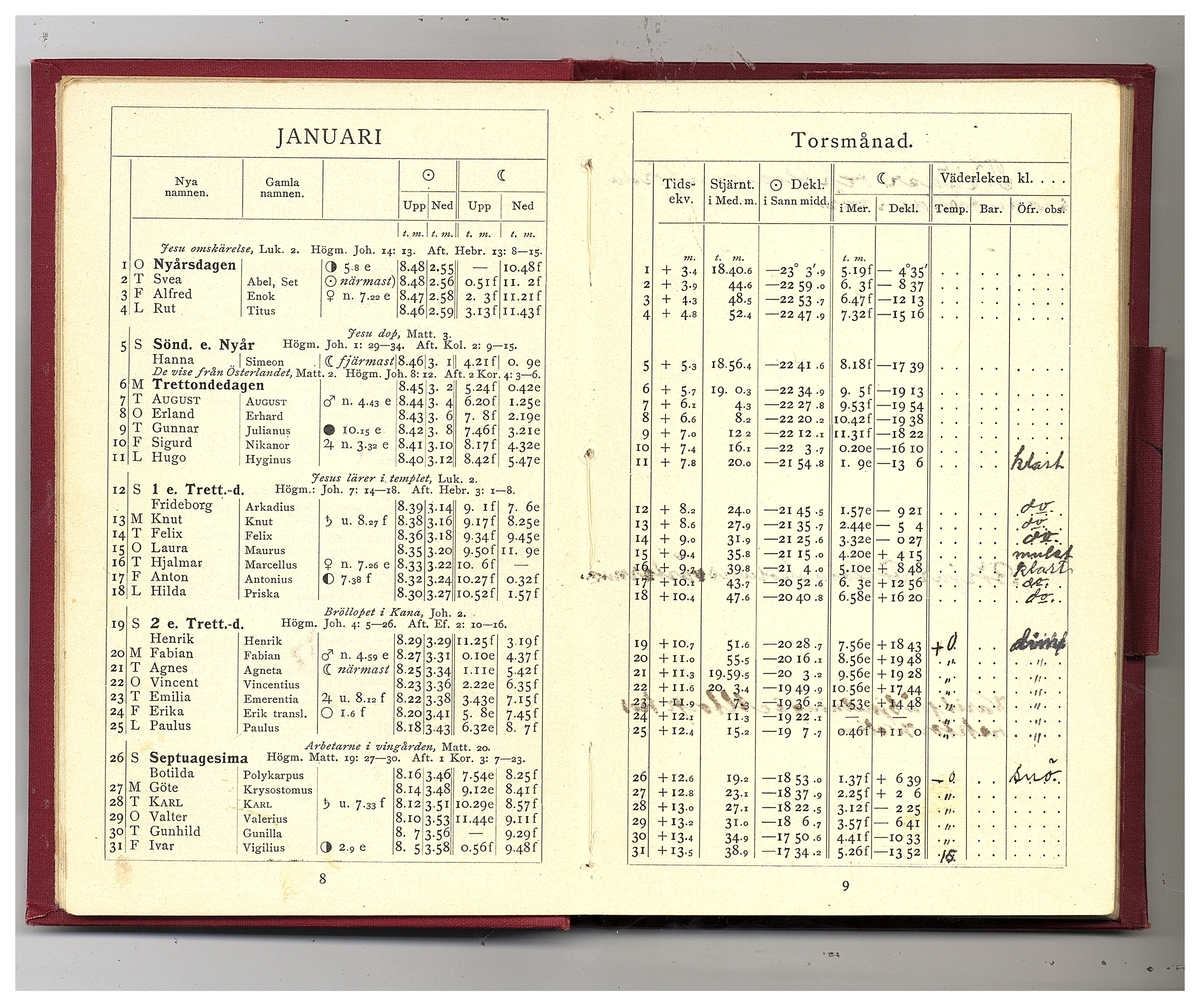 JANUARI
Nya namnen. Gamla namnen. ☉ ☾
Upp Ned Upp Ned
t. m. t. m. t. m. t. m.
Jesu omskärelse, Luk. 2. Högm. Joh. 14: 13. Aft. Hebr. 13: 8—15.
1 O Nyårsdagen ◑ 5.8 e 8.48 2.55 — 10.48f
2 T Svea Abel, Set ☉ närmast) 8.48 2.56 0.51f 11. 2f
3 F Alfred Enok ♀ n. 7.22 e 8.47 2.58 2. 3f 11.21f
4 L Rut Titus 8.46 2.59 3.13f 11.43f
Jesu dop, Matt. 3.
5 S Sönd. e. Nyår Högm. Joh. 1: 29—34. Aft. Kol. 2: 9—15.
Hanna Simeon ☾ fjärmast 8.46 3. 1 4.21f 0. 9e
De vise från Österlandet, Matt. 2. Högm. Joh. 8: 12. Aft. 2 Kor. 4: 3—6.
6 M Trettondedagen 8.45 3. 2 5.24f 0.42e
7 T AUGUST AUGUST ♂ n. 4.43 e 8.44 3. 4 6.20f 1.25e
8 O Erland Erhard 8.43 3. 6 7. 8f 2.19e
9 T Gunnar Julianus ● 10.15 e 8.42 3. 8 7.46f 3.21e
10 F Sigurd Nikanor ♃ n. 3.32 e 8.41 3.10 8.17f 4.32e
11 L Hugo Hyginus 8.40 3.12 8.42f 5.47e
Jesus lärer i templet, Luk. 2.
12 S 1 e. Trett.-d. Högm.: Joh. 7: 14—18. Aft. Hebr. 3: 1—8.
Frideborg Arkadius 8.39 3.14 9. 1f 7. 6e
13 M Knut Knut ♄ u. 8.27 f 8.38 3.16 9.17f 8.25e
14 T Felix Felix 8.36 3.18 9.34f 9.45e
15 O Laura Maurus 8.35 3.20 9.50f 11. 9e
16 T Hjalmar Marcellus ♀ n. 7.26 e 8.33 3.22 10. 6f —
17 F Anton Antonius ◐ 7.38 f 8.32 3.24 10.27f 0.32f
18 L Hilda Priska 8.30 3.27 10.52f 1.57f
Bröllopet i Kana, Joh. 2.
19 S 2 e. Trett.-d. Högm. Joh. 4: 5—26. Aft. Ef. 2: 10—16.
Henrik Henrik 8.29 3.29 11.25f 3.19f
20 M Fabian Fabian ♂ n. 4.59 e 8.27 3.31 0.10e 4.37f
21 T Agnes Agneta ☾ närmast 8.25 3.34 1.11e 5.42f
22 O Vincent Vincentius 8.23 3.36 2.22e 6.35f
23 T Emilia Emerentia ♃ u. 8.12 f 8.22 3.38 3.43e 7.15f
24 F Erika Erik transl. ○ 1.6 f 8.20 3.41 5. 8e 7.45f
25 L Paulus Paulus 8.18 3.43 6.32e 8. 7f
Arbetarne i vingården, Matt. 20.
26 S Septuagesima Högm. Matt. 19: 27—30. Aft. 1 Kor. 3: 7—23.
Botilda Polykarpus 8.16 3.46 7.54e 8.25f
27 M Göte Krysostomus 8.14 3.48 9.12e 8.41f
28 T KARL KARL ♄ u. 7.33 f 8.12 3.51 10.29e 8.57f
29 O Valter Valerius 8.10 3.53 11.44e 9.11f
30 T Gunhild Gunilla 8. 7 3.56 — 9.29f
31 F Ivar Vigilius ◑ 2.9 e 8. 5 3.58 0.56f 9.48f
8
Torsmånad.
Tids-ekv. Stjärnt. i Med. m. ☉ Dekl. i Sann midd. ☾ Väderleken kl. . . . .
i Mer. Dekl. Temp. Bar. Öfr. obs.
m. t. m. t. m.
1 + 3.4 18.40.6 —23° 3'.9 5.19f — 4°35'
2 + 3.9 44.6 —22 59.0 6. 3f — 8 37
3 + 4.3 48.5 —22 53.7 6.47f —12 13
4 + 4.8 52.4 —22 47.9 7.32f —15 16
5 + 5.3 18.56.4 —22 41.6 8.18f —17 39
6 + 5.7 19. 0.3 —22 34.9 9. 5f —19 13
7 + 6.1 4.3 —22 27.8 9.53f —19 54
8 + 6.6 8.2 —22 20.2 10.42f —19 38
9 + 7.0 12 2 —22 12.1 11.31f —18 22
10 + 7.4 16.1 —22 3.7 0.20e —16 10
11 + 7.8 20.0 —21 54.8 1. 9e —13 6 klart
12 + 8.2 24.0 —21 45.5 1.57e — 9 21 do
13 + 8.6 27.9 —21 35.7 2.44e — 5 4 do
14 + 9.0 31.9 —21 25.6 3.32e — 0 27 do
15 + 9.4 35.8 —21 15.0 4.20e + 4 15 mulet
16 + 9.7 39.8 —21 4.0 5.10e + 8 48 klart
17 +10.1 43.7 —20 52.6 6. 3e +12 56 do
18 +10.4 47.6 —20 40.8 6.58e +16 20 do
19 +10.7 51.6 —20 28.7 7.56e +18 43 +0.
20 +11.0 55.5 —20 16.1 8.56e +19 48 " "
21 +11.3 19.59.5 —20 3.2 9.56e +19 28 " "
22 +11.6 20. 3.4 —19 49.9 10.56e +17 44 " "
23 +11.9 7.3 —19 36.2 11.53e +14 48 " "
24 +12.1 11.3 —19 22.1 — — " "
25 +12.4 15.2 —19 7.7 0.46f +11 0 " "
26 +12.6 19.2 —18 53.0 1.37f + 6 39 —0. snö.
27 +12.8 23.1 —18 37.9 2.25f + 2 6 "
28 +13.0 27.1 —18 22.5 3.12f — 2 25 "
29 +13.2 31.0 —18 6.7 3.57f — 6 41 "
30 +13.4 34.9 —17 50.6 4.41f —10 33 "
31 +13.5 38.9 —17 34.2 5.26f —13 52 15.
9